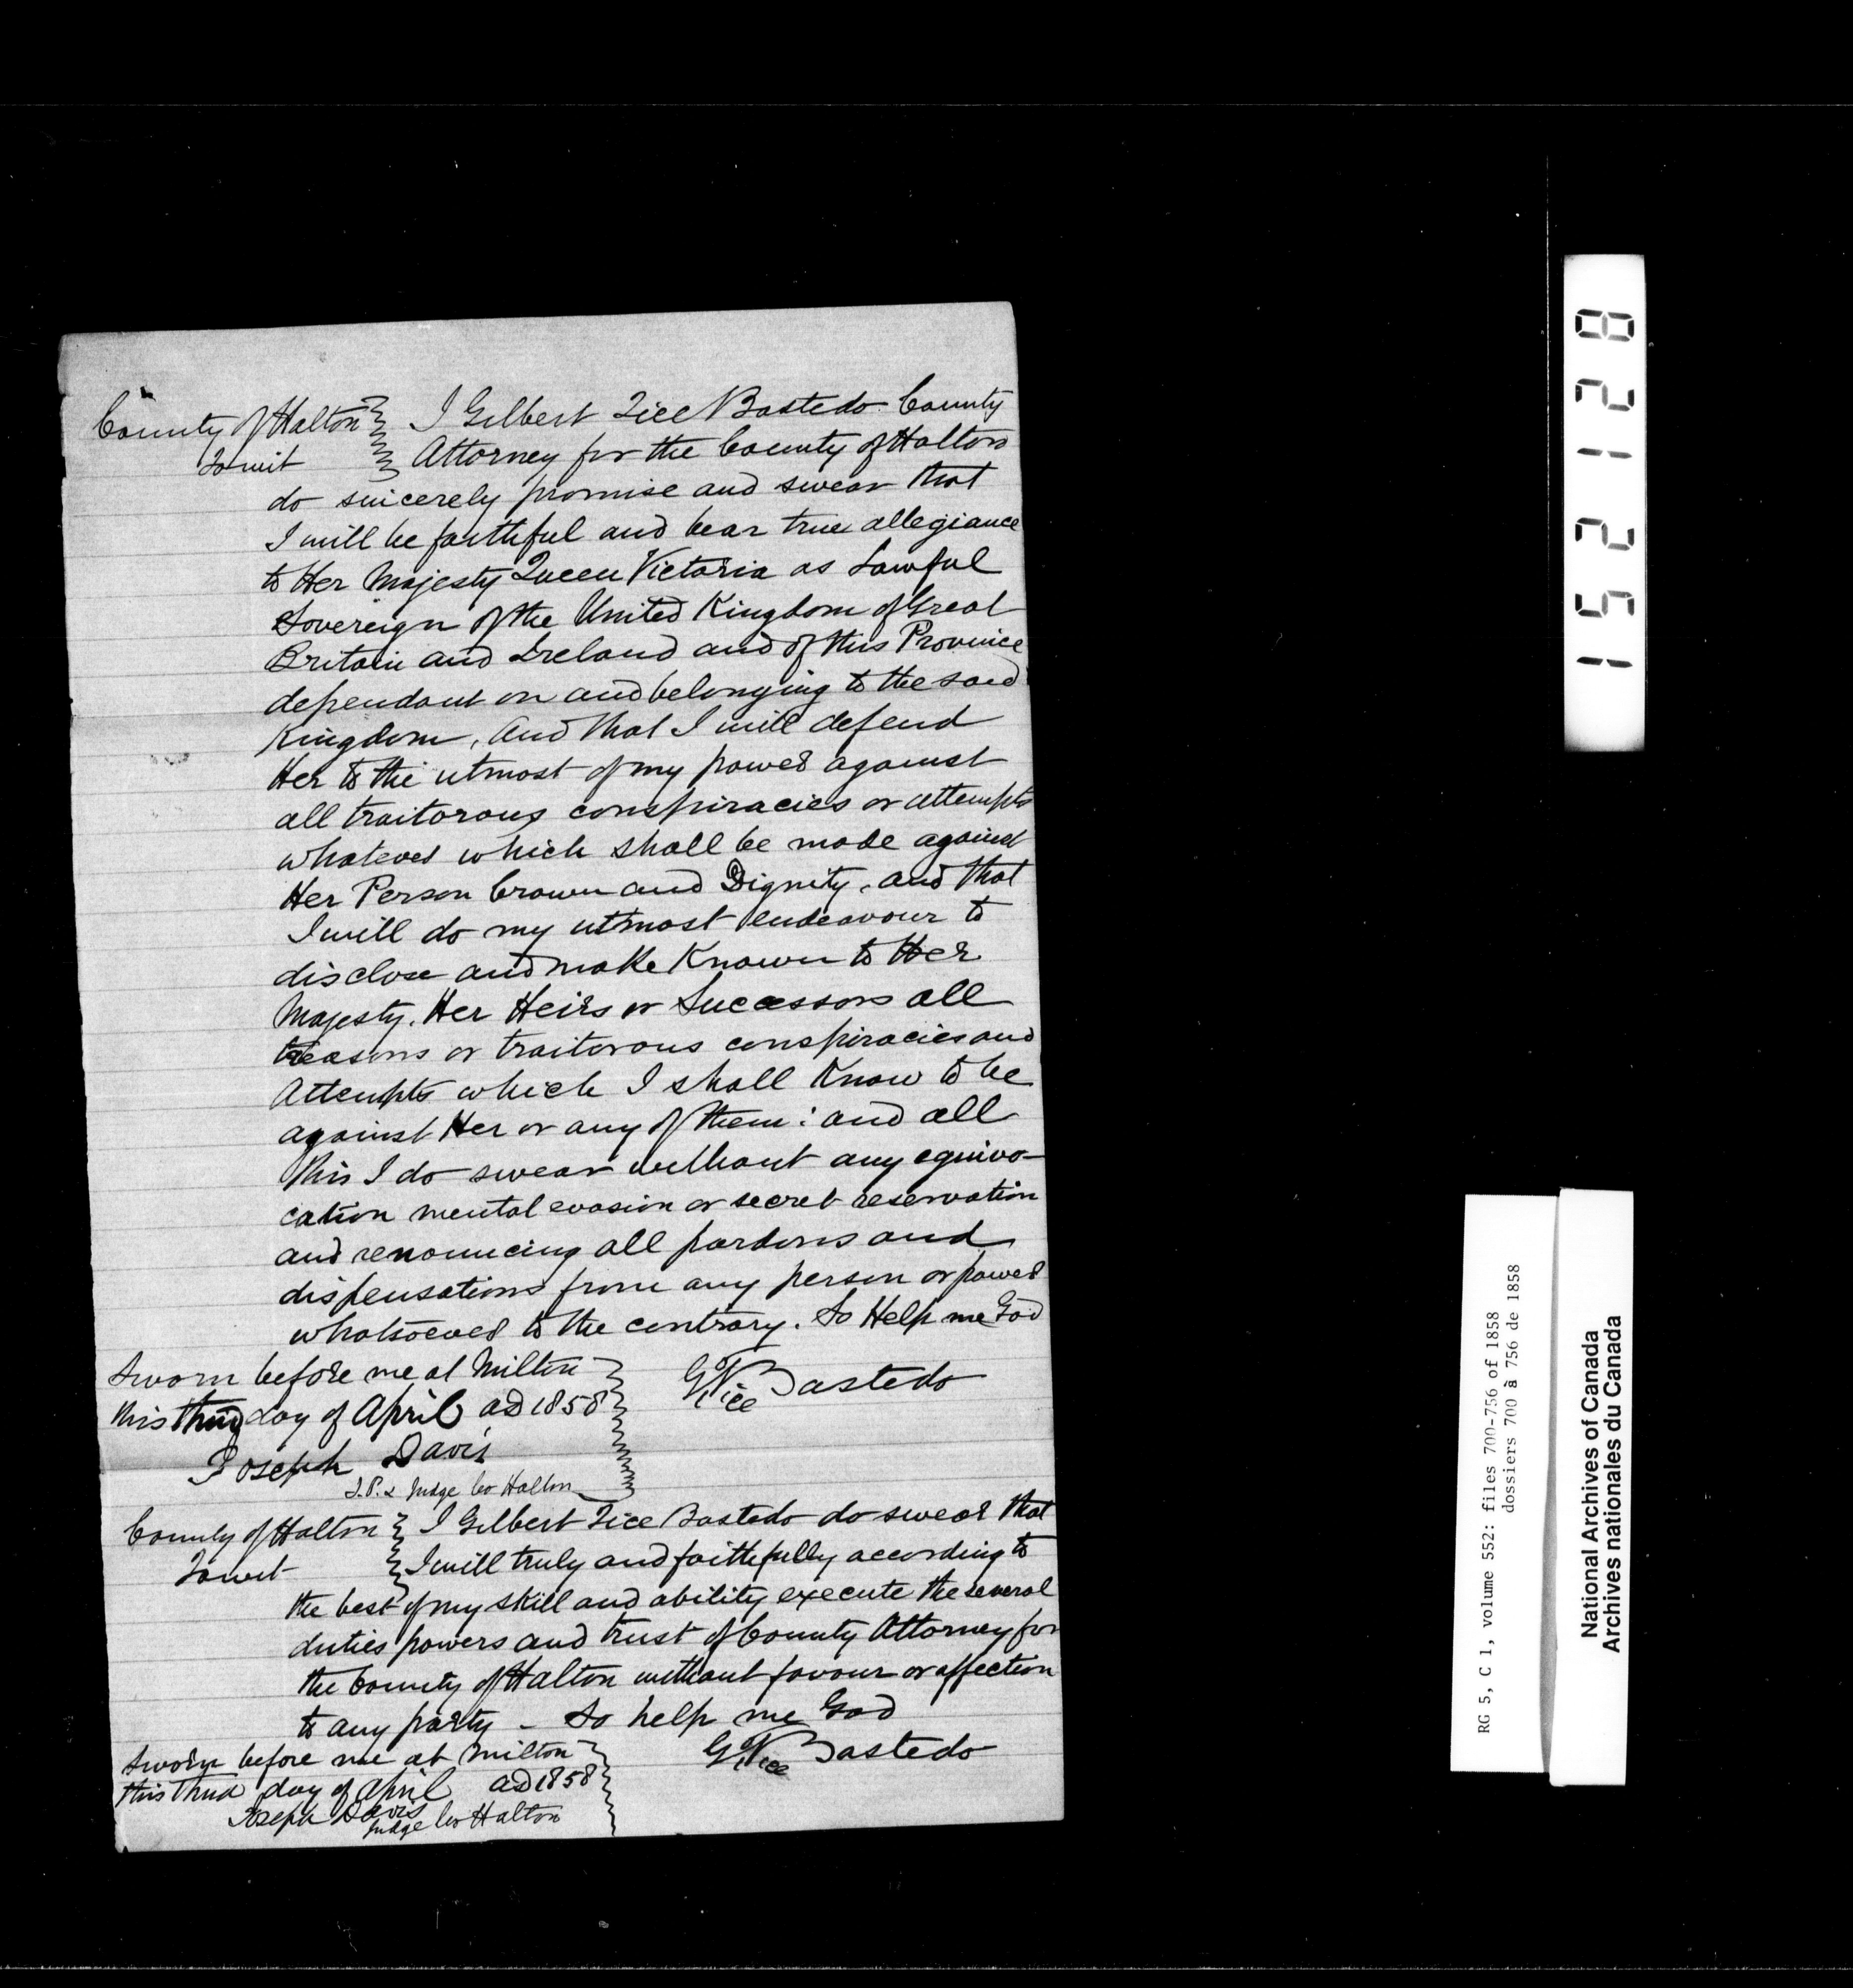 County of Halton } I Gilbert Tice Bastedo County
To wit } Attorney for the County of Halton
do sincerely promise and swear that
I will be faithful and bear true allegiance
to Her Majesty Queen Victoria as Lawful
Sovereign of the United Kingdom of Great
Britain and Ireland and of this Province
dependant on and belonging to the said
Kingdom, And that I will defend
Her to the utmost of my power against
all traitorous conspiracies or attempts
whatever which shall be made against
Her Person Crown and Dignity, and that
I will do my utmost endeavour to
disclose and make Known to Her
Majesty, Her Heirs or Successors all
treasons or traitorous conspiracies and
Attempts which I shall Know to be
against Her or any of them: and all
this I do swear without any equivo-
cation mental evasion or secret reservation
and renouncing all pardons and
dispensations from any person or power
whatsoever to the contrary. So Help me God
Sworn before me at Milton
this third day of April AD 1858
G Tice Bastedo
Joseph Davis
J.P. & Judge Co Halton
County of Halton } I Gilbert Tice Bastedo do swear that
To wit } I will truly and faithfully according to
the best of my skill and ability execute the several
duties powers and trust of County Attorney for
the County of Halton without favour or affection
to any party - So help me God
Sworn before me at Milton
this third day of April AD 1858
G Tice Bastedo
Joseph Davis
Judge Co Halton
152128
RG 5, C 1, volume 552: files 700-756 of 1858
dossiers 700 à 756 de 1858
National Archives of Canada
Archives nationales du Canada